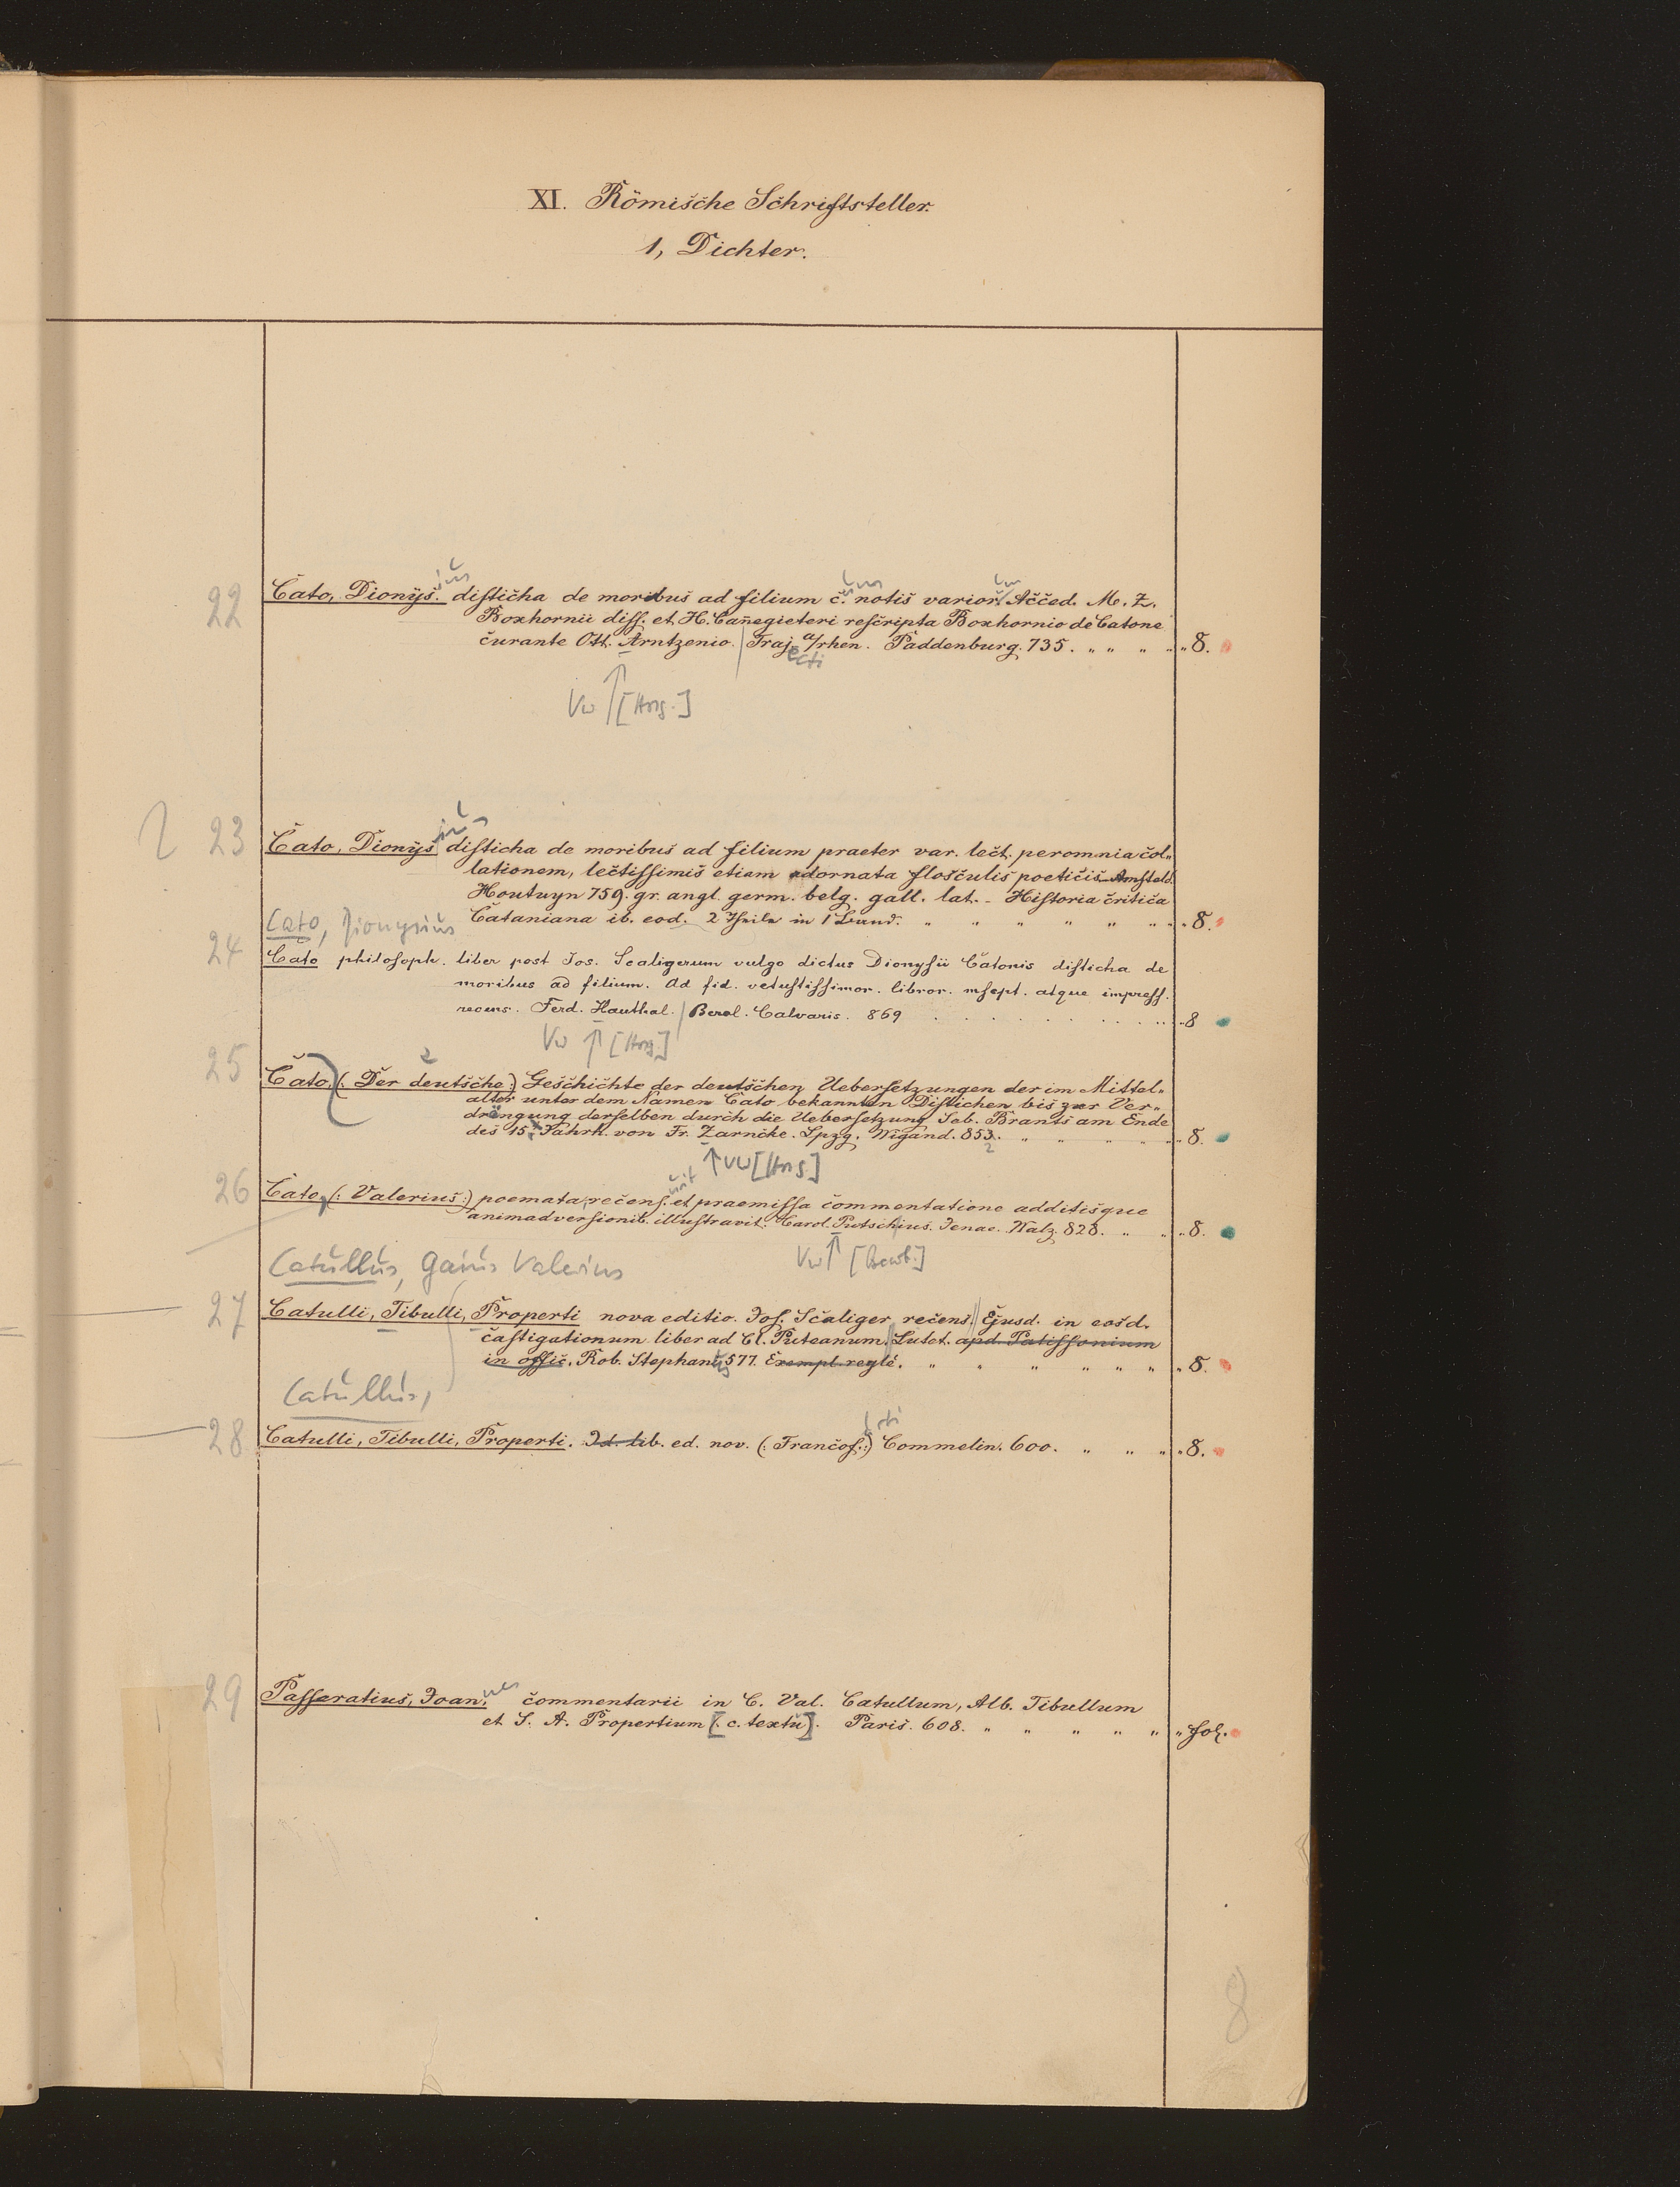 XI. Römische Schriftsteller.
1, Dichter.
ius
um
um
22 Cato, Dionys. disticha de moribus ad filium c. notis varior. Acced. M. Z.
Boxhornii diss. et H. Canegieteri rescripta Boxhornio de Catone
curante Ott. Arntzenio. Traj. a/rhen. Paddenburg. 735. „ „ „ „ „ 8.
ecti
Vw [Hrsg.]
ius
23 Cato, Dionys disticha de moribus ad filium praeter var. lect. peromnia col„
lationem, lectissimis etiam adornata flosculis poeticis Amsteld.
Houtuyn 759. gr. angl. germ. belg. gall. lat. - Historia critica
Cataniana ib. eod. 2 Theile in 1 Band. „ „ „ „ „ „ „ „ 8.
Cato, Dionysius
24 Cato philosoph. liber post Jos. Scaligerum vulgo dictus Dionysii Catonis disticha de
moribus ad filium. Ad fid. vetustissimor. libror. mscpt. atque impress.
recens. Ferd. Hauthal. Berol. Calvaris. 869 . . . . . . . . „ 8
Vw [Hrsg.]
2
25 Cato (: Der deutsche:) Geschichte der deutschen Uebersetzungen der im Mittel„
alter unter dem Namen Cato bekannten Distichen bis zur Ver„
drängung derselben durch die Uebersetzung Seb. Brants am Ende
des 15. Jahrh. von Fr. Zarncke. Lpzg. Wigand. 853. „ „ „ „ „ „ 8.
2
Vw [Hrsg.]
uit
26 Cato, (: Valerius:) poemata, recens. et praemissa commentatione additisque
animadversionib. illustravit. Carol. Putschius. Jenae. Walz. 828. „ „ „ 8.
Vw [Bearb.]
Catullus, Gaius Valerius
27 Catulli, Tibulli, Properti nova editio. Jos. Scaliger recens. Ejusd. in eosd.
castigationum liber ad Cl. Puteanum. Lutet. apd. Patissonium
in offic. Rob. Stephani 577. Exempl. reglé. „ „ „ „ „ „ „ 8.
Catullus,
rti
28 Catulli, Tibulli, Properti. Id. lib. ed. nov. (: Francof.:) Commelin. 600. „ „ „ „ 8.
nes
29 Passeratius, Joan. commentarii in C. Val. Catullum, Alb. Tibullum
et S. A. Propertium [. c. textu]. Paris. 608. „ „ „ „ „ „ fol.
8